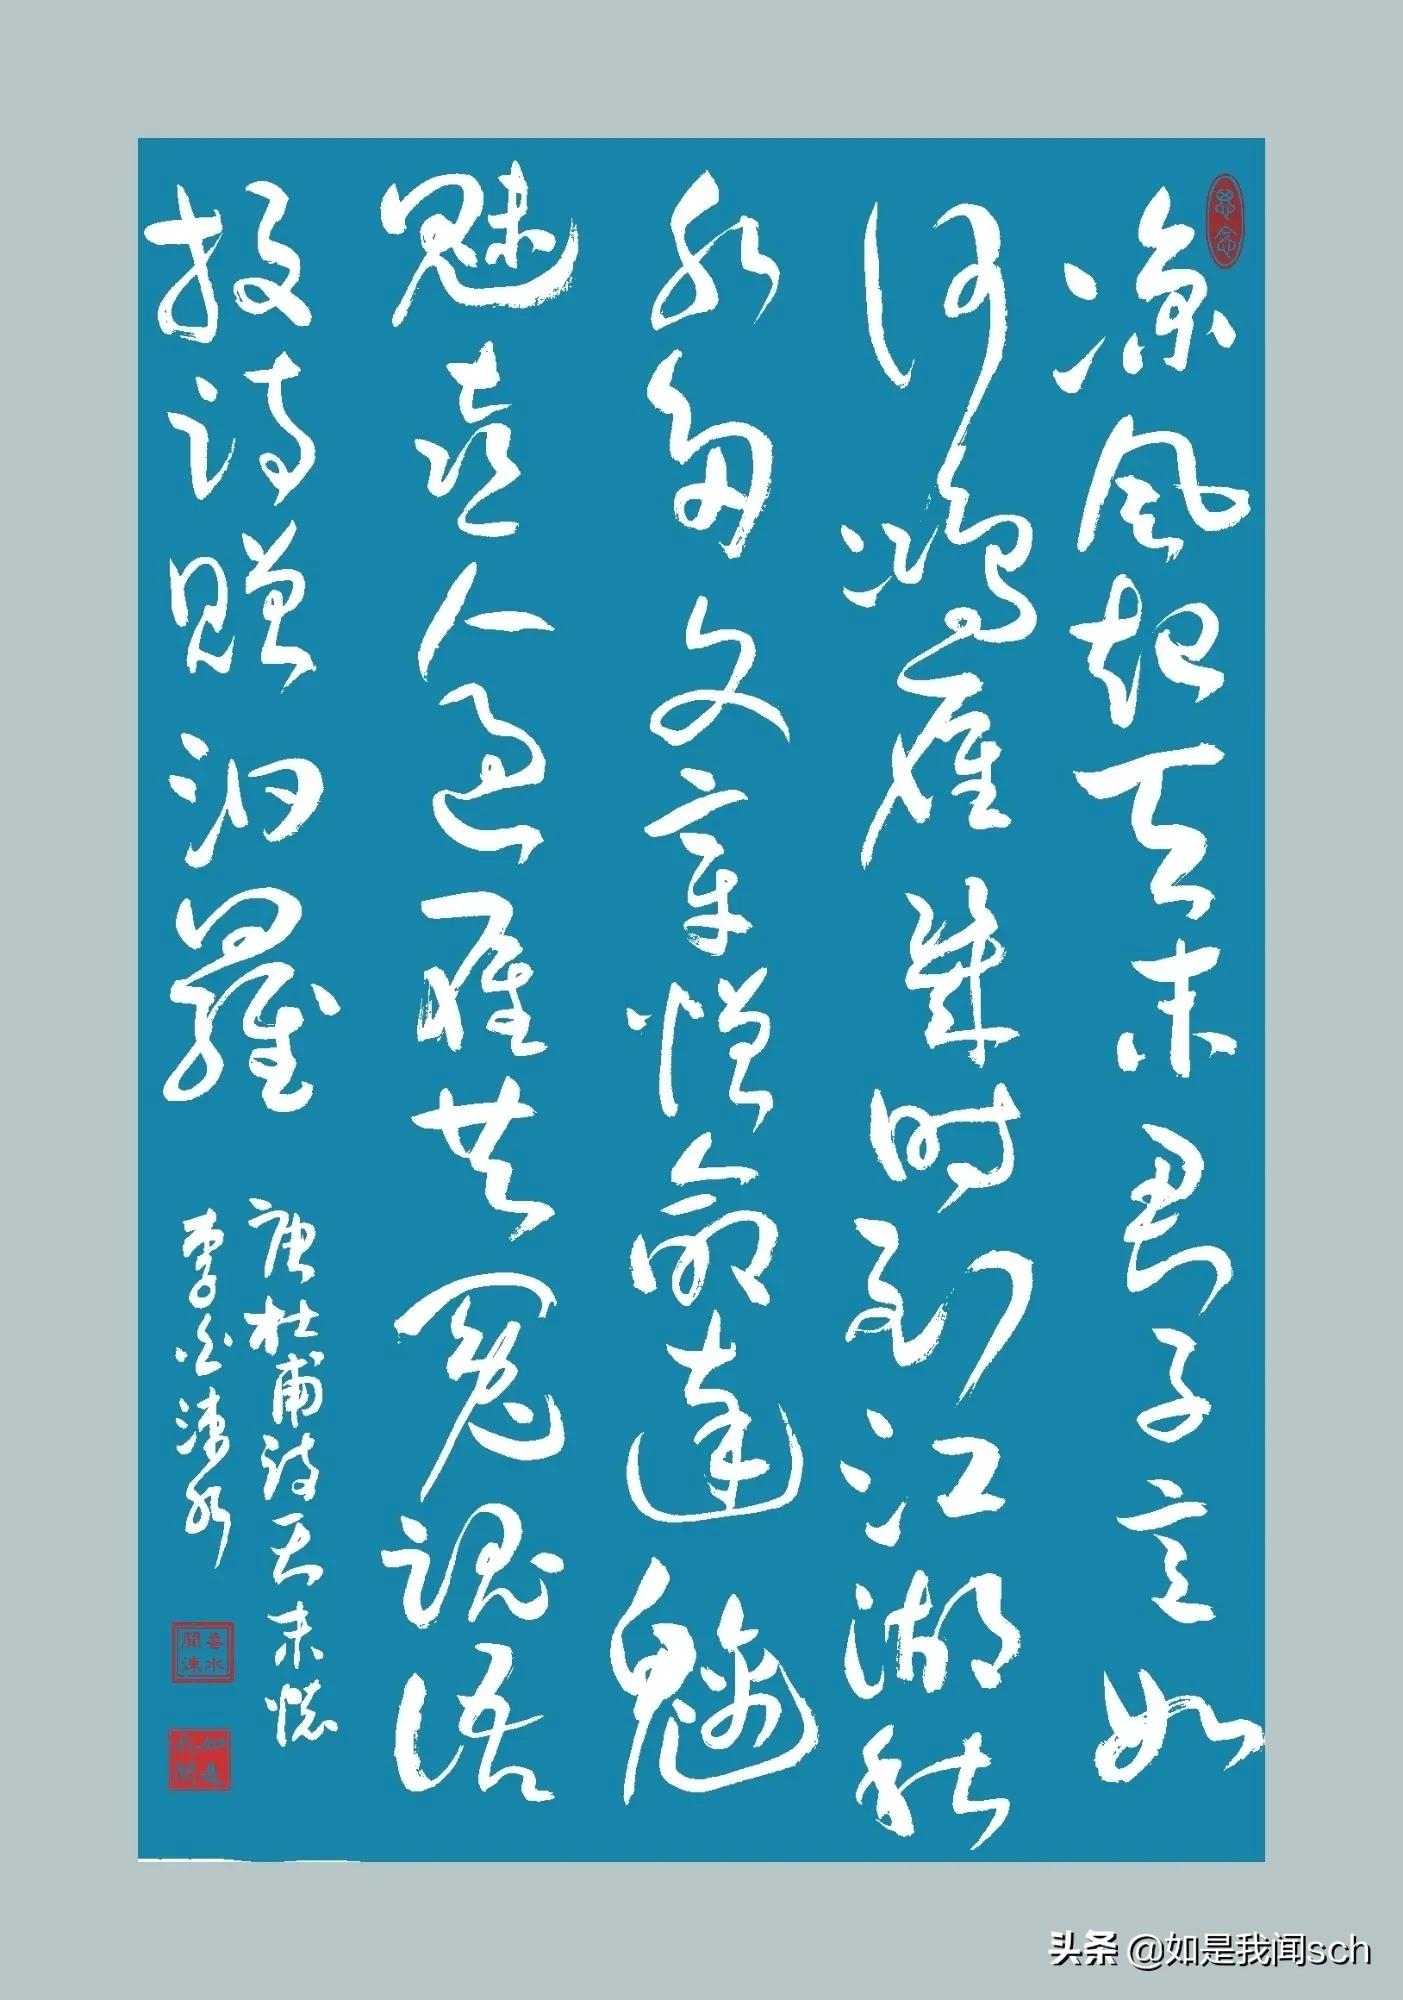 凉风起天末君子意如
何鸿雁几时到江湖秋
水多文章憎命达魑
魅喜人过应共冤魂语
投诗赠汨罗
唐杜甫诗天末怀
李白涑水
喜水
闻涑
头条 @如是我闻sch